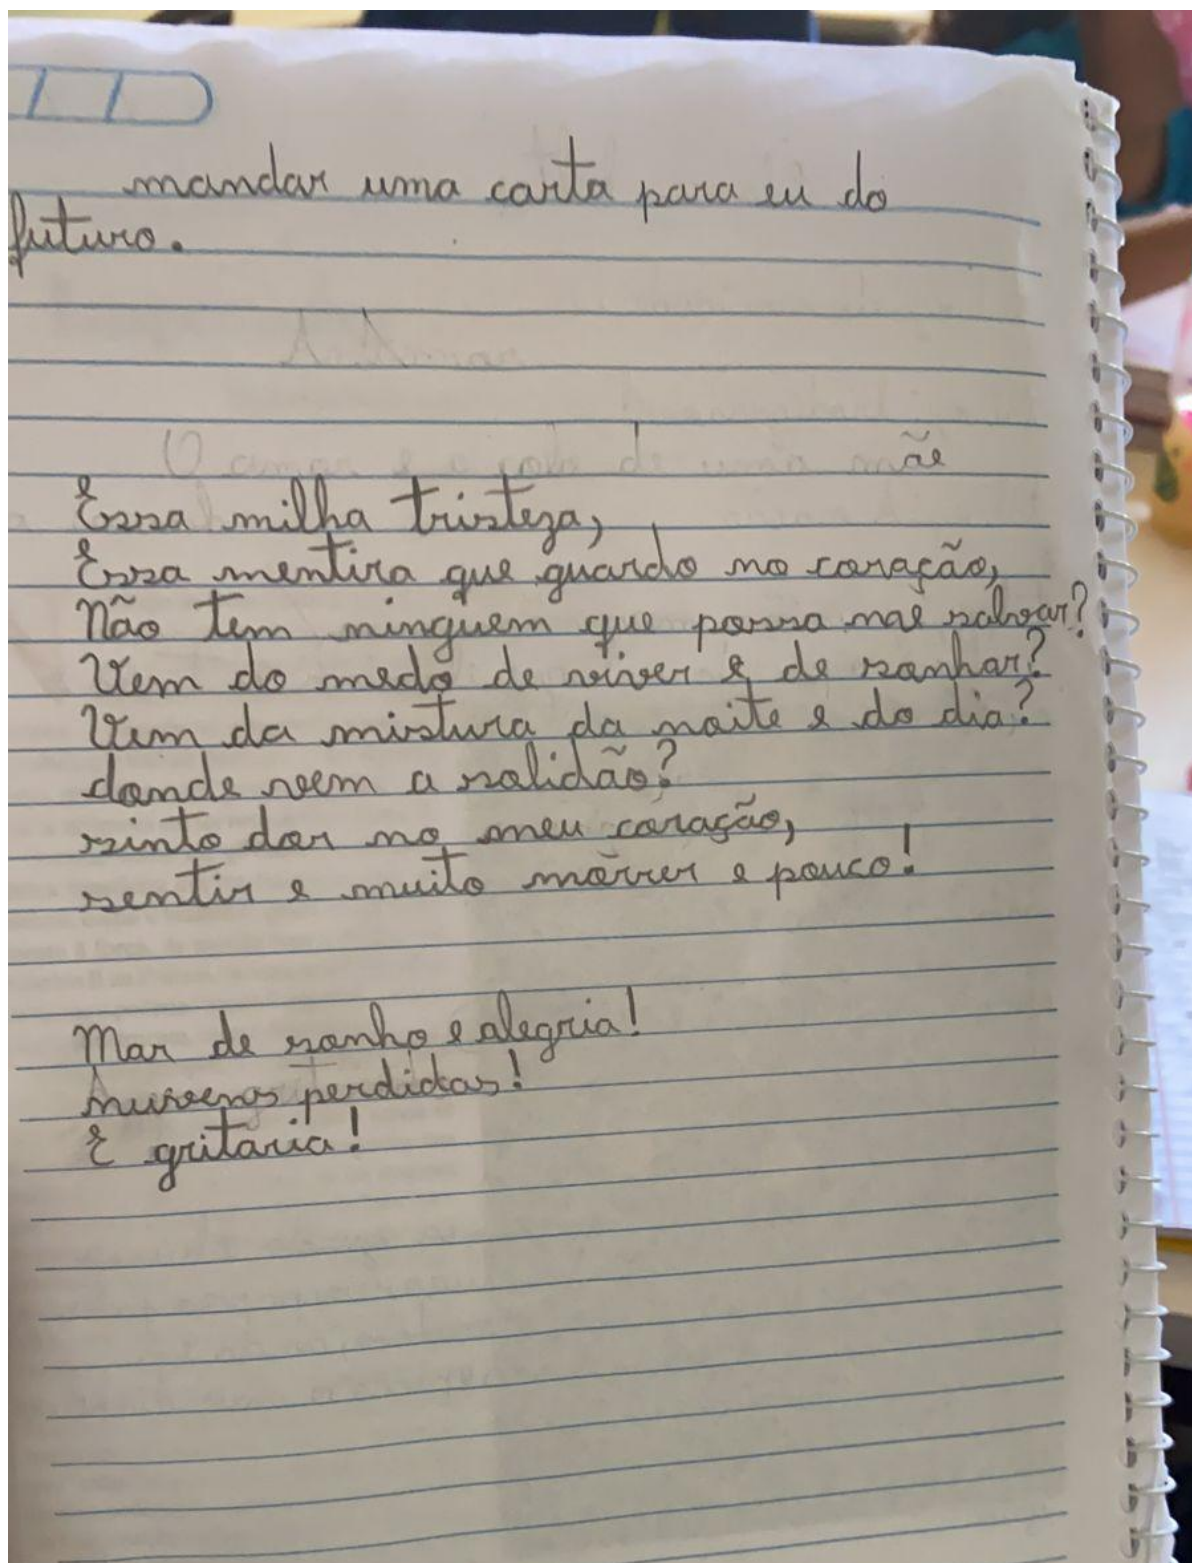 mandar uma carta para eu do
futuro.
O amor é o colo de uma mãe
Essa milha tristeza,
Essa mentira que guardo no coração,
Não tem ninguem que possa mae salvar?
Vem do medo de viver e de sonhar?
Vem da mistura da noite e do dia?
donde veem a solidão?
sinto dor no meu coração,
sentir e muito morrer e pouco!
Mar de sonho e alegria!
nuvens perdidas!
E gritaria!